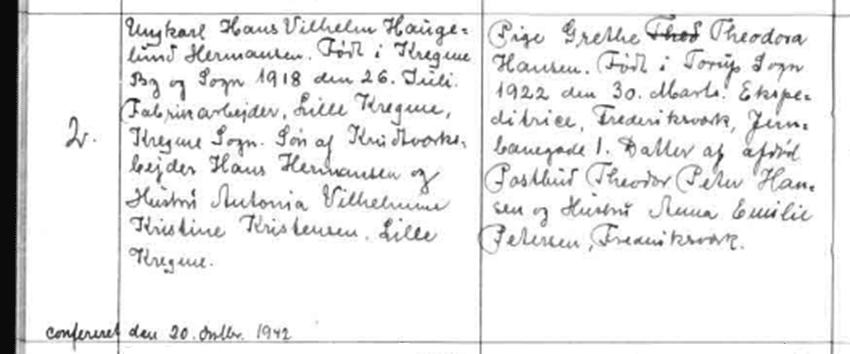 Ungkarl Hans Vilhelm Hauge-
lund Hermansen. Født i Kregme
By og Sogn 1918 den 26. Juli.
Fabrikarbejder, Lille Kregme,
2. Kregme Sogn. Søn af Krudtværks-
bejder Hans Hermansen og
Hustru Antonia Vilhelmine
Kristine Kristensen. Lille
Kregme.
Pige Grethe Theod Theodora
Hansen. Født i Torup Sogn
1922 den 30. Marts. Ekspe-
ditrice, Frederiksværk, Jern-
banegade 1. Datter af afdød
Postbud Theodor Peter Han-
sen og Hustru Anna Emilie
Petersen, Frederiksværk.
confereret den 20. 1942